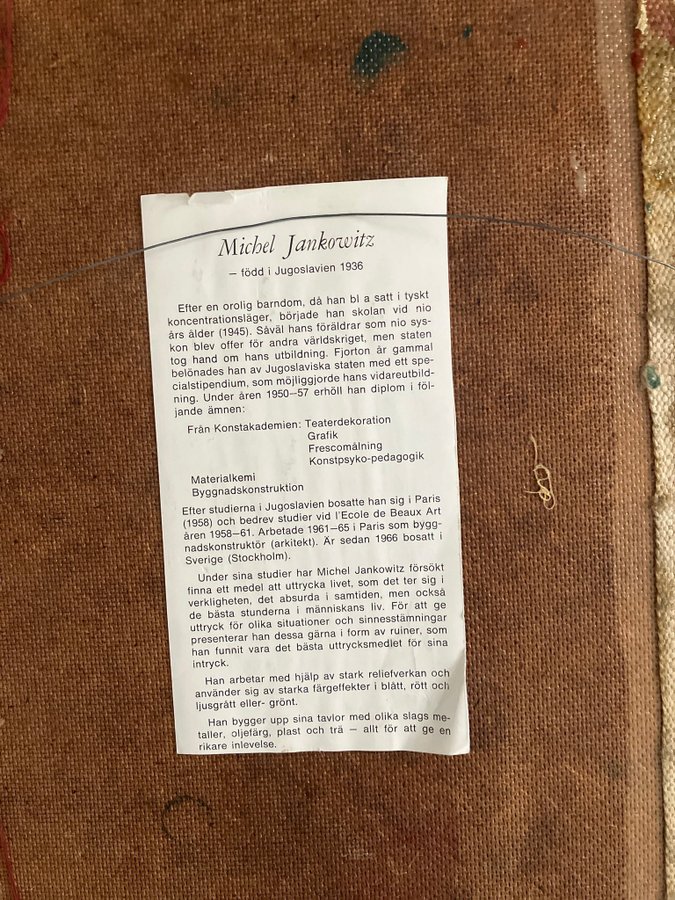 Michel Jankowitz
– född i Jugoslavien 1936
Efter en orolig barndom, då han bl a satt i tyskt
koncentrationsläger, började han skolan vid nio
års ålder (1945). Såväl hans föräldrar som nio sys-
kon blev offer för andra världskriget, men staten
tog hand om hans utbildning. Fjorton år gammal
belönades han av Jugoslaviska staten med ett spe-
cialstipendium, som möjliggjorde hans vidareutbild-
ning. Under åren 1950–57 erhöll han diplom i föl-
jande ämnen:
Från Konstakademien: Teaterdekoration
Grafik
Frescomålning
Konstpsyko-pedagogik
Materialkemi
Byggnadskonstruktion
Efter studierna i Jugoslavien bosatte han sig i Paris
(1958) och bedrev studier vid l'Ecole de Beaux Art
åren 1958–61. Arbetade 1961–65 i Paris som bygg-
nadskonstruktör (arkitekt). Är sedan 1966 bosatt i
Sverige (Stockholm).
Under sina studier har Michel Jankowitz försökt
finna ett medel att uttrycka livet, som det ter sig i
verkligheten, det absurda i samtiden, men också
de bästa stunderna i människans liv. För att ge
uttryck för olika situationer och sinnesstämningar
presenterar han dessa gärna i form av ruiner, som
han funnit vara det bästa uttrycksmedlet för sina
intryck.
Han arbetar med hjälp av stark reliefverkan och
använder sig av starka färgeffekter i blått, rött och
ljusgrått eller- grönt.
Han bygger upp sina tavlor med olika slags me-
taller, oljefärg, plast och trä – allt för att ge en
rikare inlevelse.